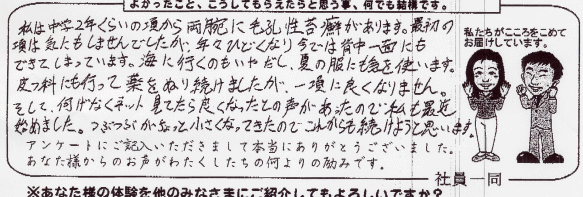 よかったこと、こうしてもらえたらと思う事、何でも結構です。
私は中学2年くらいの頃から両腕に毛孔性苔癬があります。最初の
頃は気にもしませんでしたが、年々ひどくなり今では背中一面にも
できてしまっています。海に行くのもいやだし、夏の服にも気を使います。
皮フ科にも行って薬をぬり続けましたが、一項に良くなりません。
そして、何げなくネット見てたら良くなったとの声があったので私も最近
始めました。つぶつぶがちょっと小さくなってきたのでこれからも続けようと思います。
私たちがこころをこめて
お届けしています。
アンケートにご記入いただきまして本当にありがとうございました。
あなた様からのお声がわたくしたちの何よりの励みです。
社員一同
※あなた様の体験を他のみなさまにご紹介してもよろしいですか?